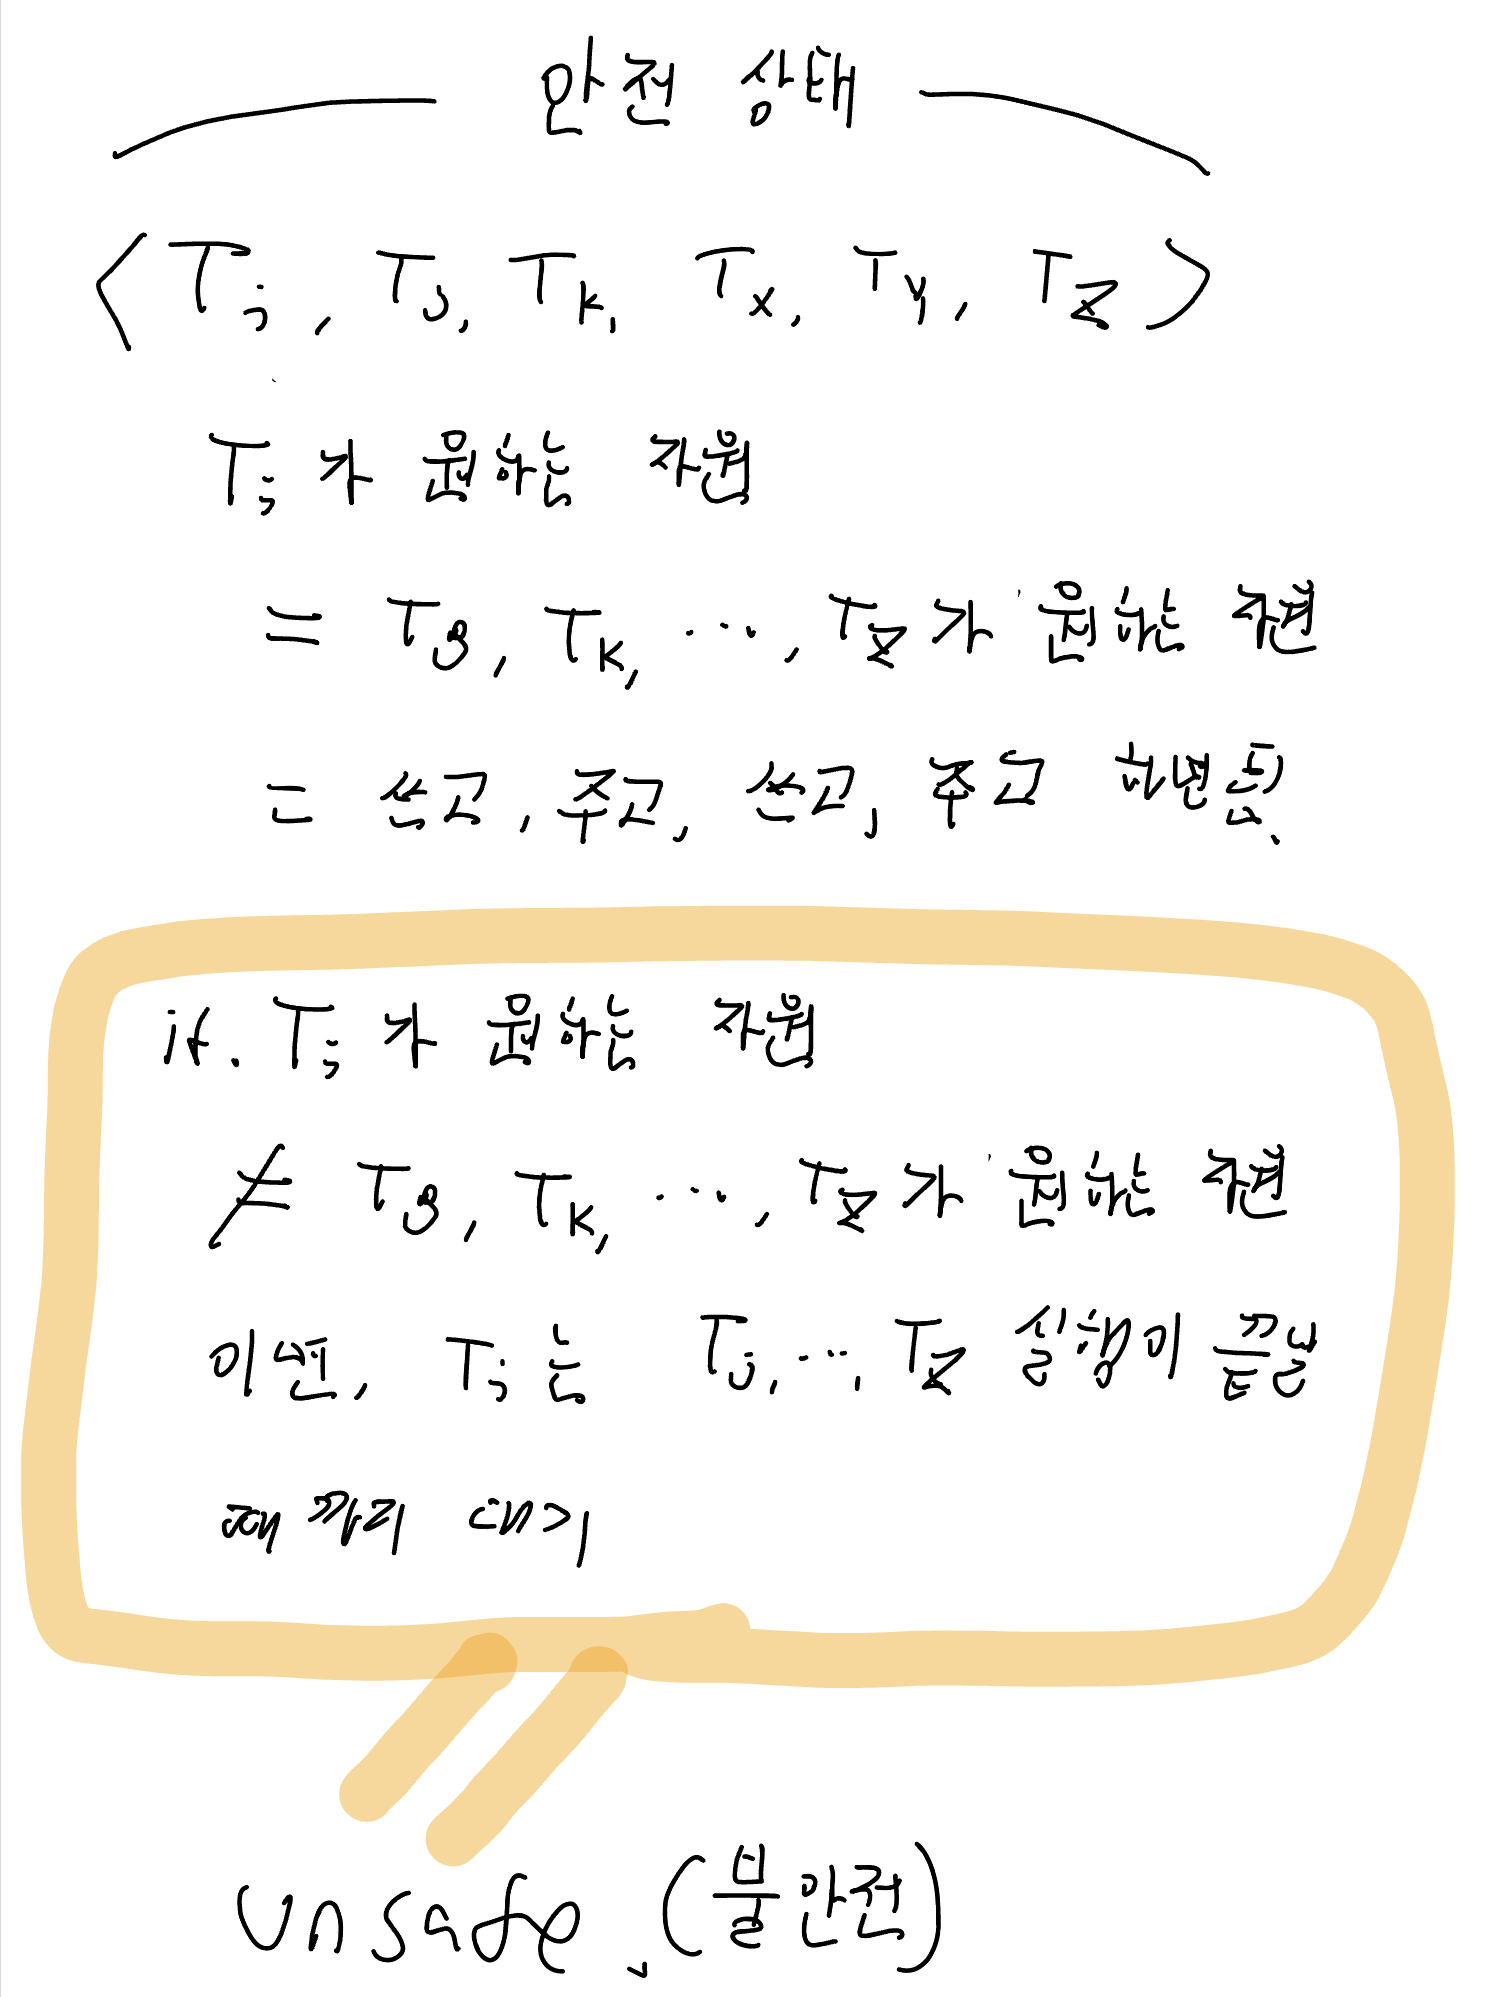 안전 상태
< Ti, Tj, Tk, Tx, Ty, Tz >
Ti가 원하는 자원
= Tj, Tk, ..., Tz가 원하는 자원
= 쓰고, 주고, 쓰고, 주고 하면 됨.
if. Ti가 원하는 자원
≠ Tj, Tk, ..., Tz가 원하는 자원
이면, Ti는 Tj, ..., Tz 실행이 끝날
때까지 대기
unsafe. (불안전)